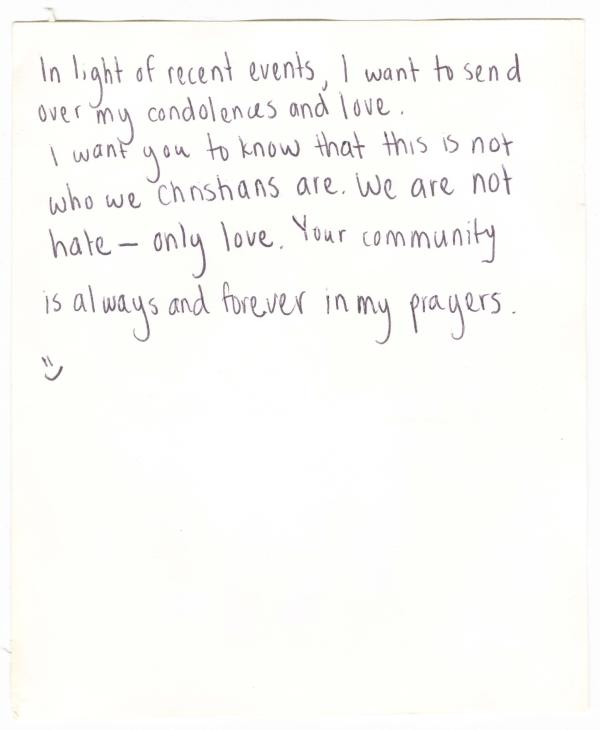 In light of recent events, I want to send
over my condolences and love.
I want you to know that this is not
who we Christians are. We are not
hate – only love. Your community
is always and forever in my prayers.